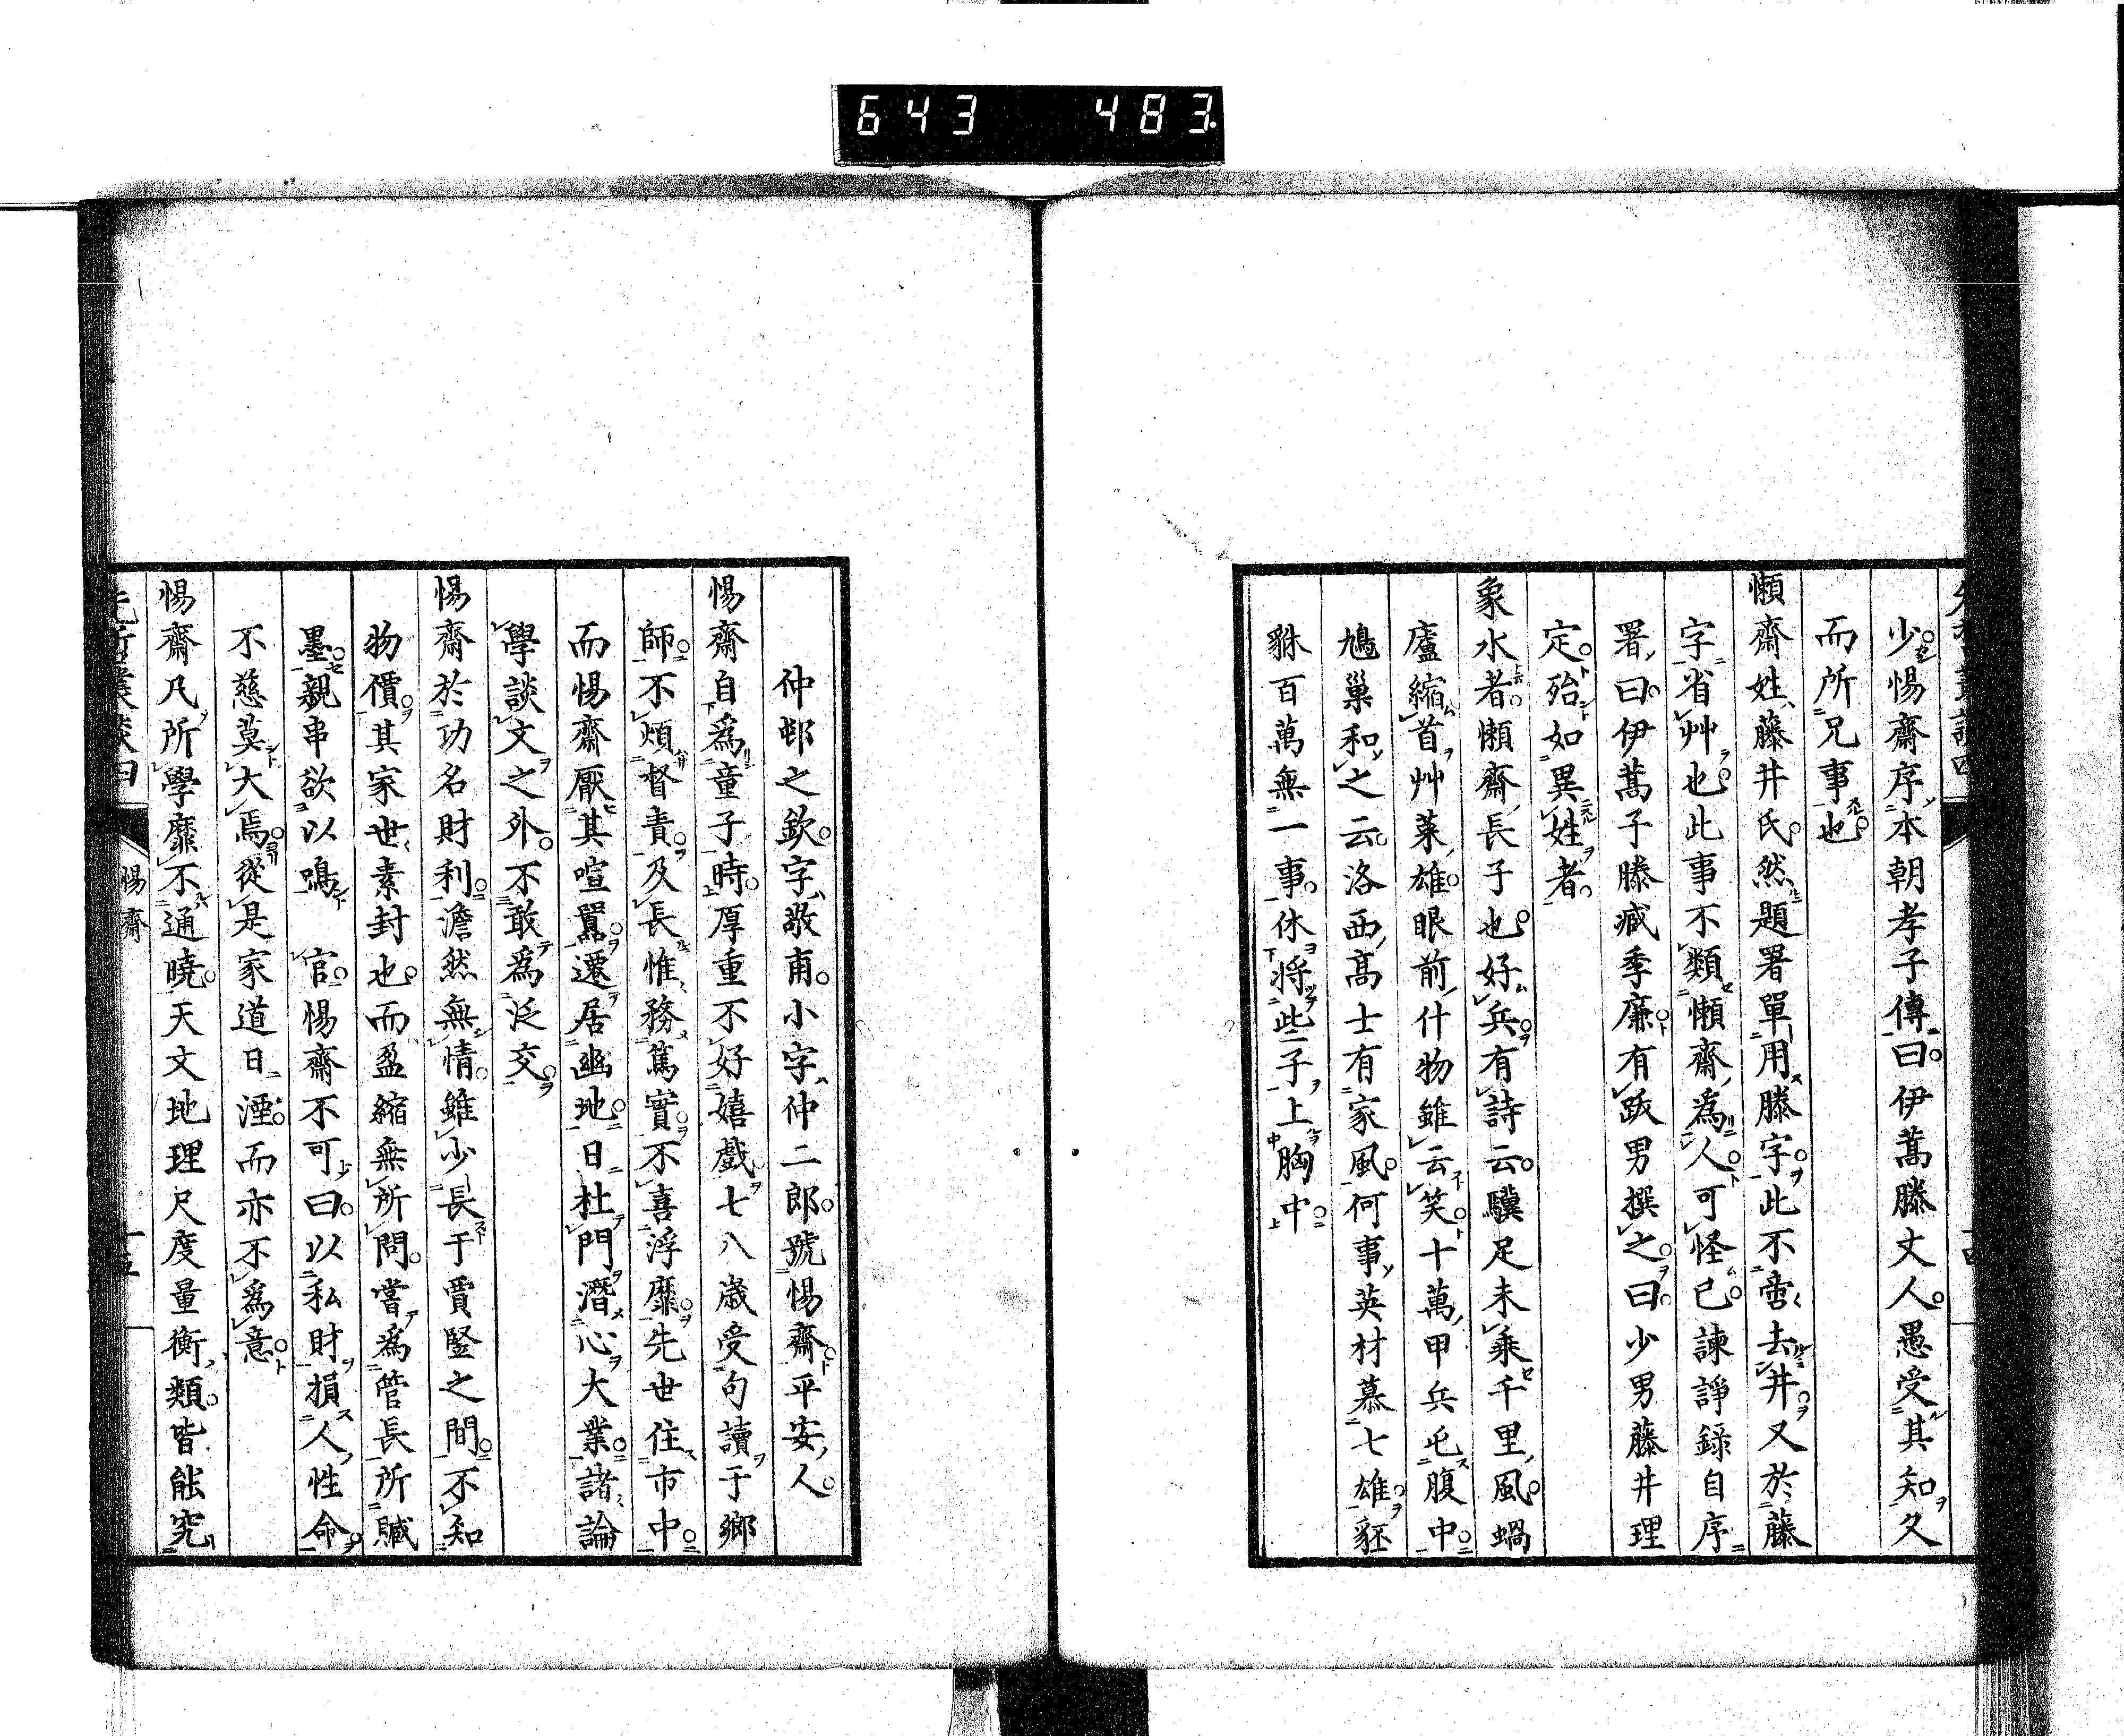 643 483
少惕齋序本朝孝子傳曰伊蒿滕丈人愚受其知久
而所兄事也
懶齋姓藤井氏然題署單用滕字此不啻去井又於藤
字省艸也此事不類懶齋為人可怪已諫諍錄自序
署曰伊蒿子滕臧季廉有跋男撰之曰少男藤井理
定殆如異姓者
象水者懶齋長子也好兵有詩云驥足未乘千里風蝸
廬縮首艸萊雄眼前什物雖云笑十萬甲兵屯腹中
鳩巢和之云洛西高士有家風何事英材慕七雄貔
貅百萬無一事休將些子上胸中
仲邨之欽字敬甫小字仲二郎號惕齋平安人
惕齋自為童子時厚重不好嬉戲七八歲受句讀于鄉
師不煩督責及長惟務篤實不喜浮靡先世住市中
而惕齋厭其喧囂遷居幽地日杜門潛心大業諸論
學談文之外不敢為泛交
惕齋於功名財利澹然無情雖少長于賈豎之間不知
物價其家世素封也而盈縮無所問嘗為管長所贓
墨親串欲以鳴 官惕齋不可曰以私財損人性命
不慈莫大焉從是家道日湮而亦不為意
惕齋凡所學靡不通曉天文地理尺度量衡類皆能究
惕齋